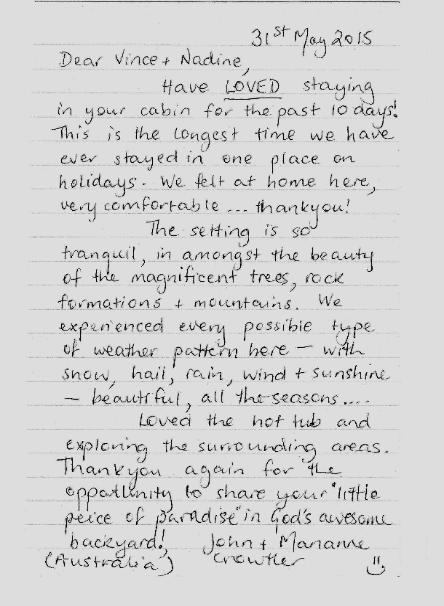 31st May 2015
Dear Vince + Nadine,
Have LOVED staying
in your cabin for the past 10 days!
This is the longest time we have
ever stayed in one place on
holidays. We felt at home here,
very comfortable ... thankyou!
The setting is so
tranquil, in amongst the beauty
of the magnificent trees, rock
formations + mountains. We
experienced every possible type
of weather pattern here – with
snow, hail, rain, wind + sunshine
– beautiful, all the seasons....
Loved the hot tub and
exploring the surrounding areas.
Thankyou again for the
oppotunity to share your "little
peice of paradise" in God's awesome
backyard! John + Marianne
(Australia) Crowther